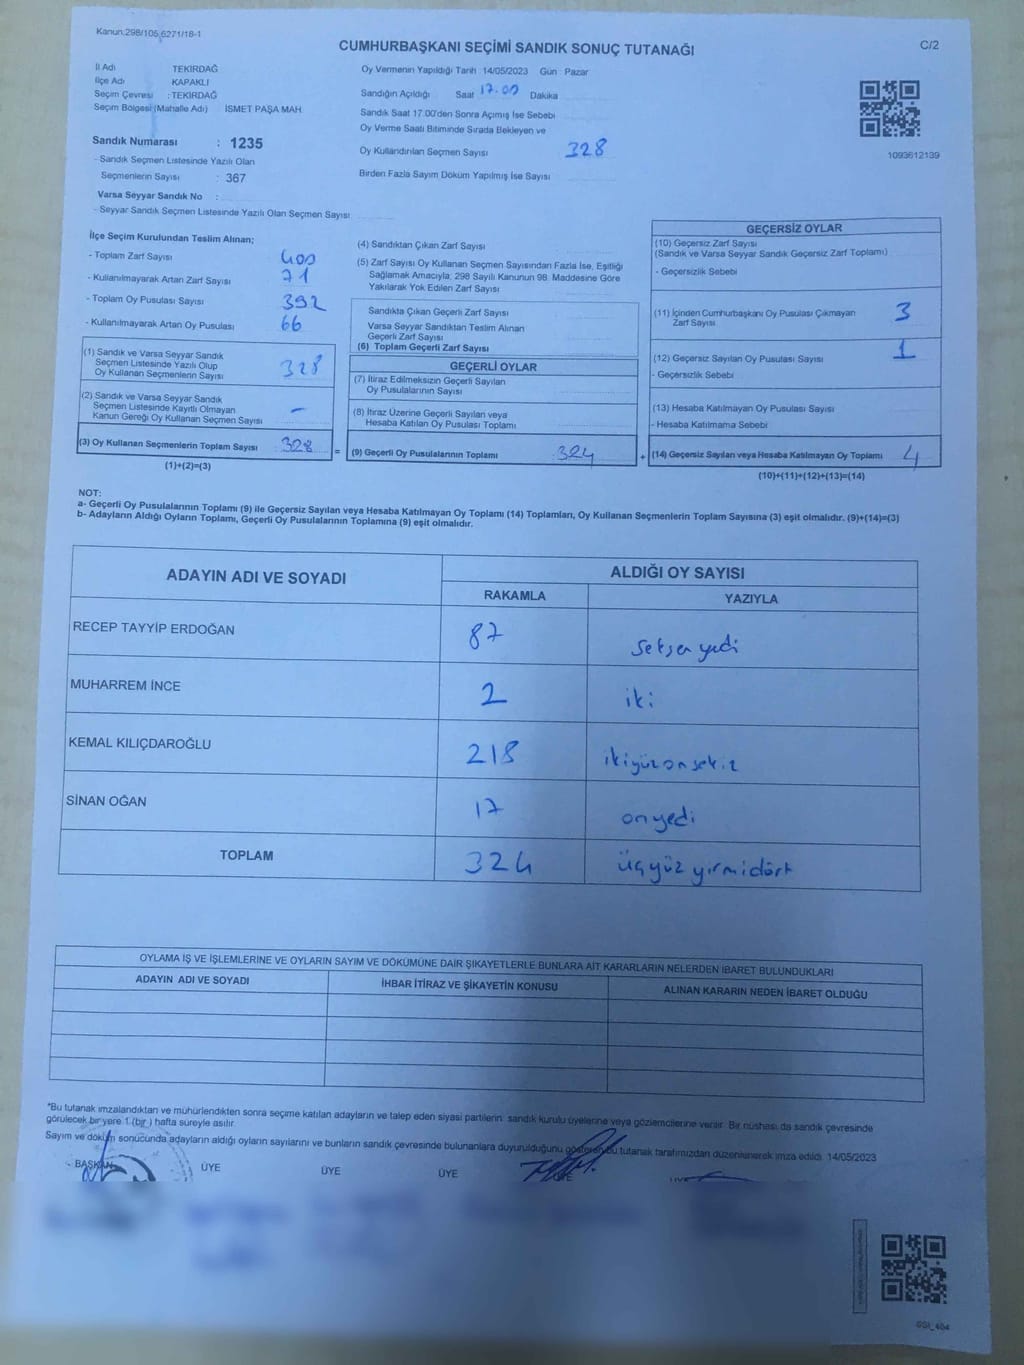 Kanun:298/105,6271/18-1
C/2
CUMHURBAŞKANI SEÇİMİ SANDIK SONUÇ TUTANAĞI
İl Adı TEKİRDAĞ
İlçe Adı KAPAKLI
Seçim Çevresi : TEKİRDAĞ
Seçim Bölgesi (Mahalle Adı) İSMET PAŞA MAH.
Oy Vermenin Yapıldığı Tarih: 14/05/2023 Gün Pazar
Sandığın Açıldığı Saat 17.00 Dakika
Sandık Saat 17.00'den Sonra Açımış İse Sebebi
Oy Verme Saati Bitiminde Sırada Bekleyen ve
Oy Kullandırılan Seçmen Sayısı 328
Birden Fazla Sayım Döküm Yapılmış İse Sayısı
1093612139
Sandık Numarası : 1235
- Sandık Seçmen Listesinde Yazılı Olan
Seçmenlerin Sayısı : 367
Varsa Seyyar Sandık No :
- Seyyar Sandık Seçmen Listesinde Yazılı Olan Seçmen Sayısı
İlçe Seçim Kurulundan Teslim Alınan;
- Toplam Zarf Sayısı 400
- Kullanılmayarak Artan Zarf Sayısı 71
- Toplam Oy Pusulası Sayısı 392
- Kullanılmayarak Artan Oy Pusulası 66
(1) Sandık ve Varsa Seyyar Sandık
Seçmen Listesinde Yazılı Olup
Oy Kullanan Seçmenlerin Sayısı 328
(2) Sandık ve Varsa Seyyar Sandık
Seçmen Listesinde Kayıtlı Olmayan
Kanun Gereği Oy Kullanan Seçmen Sayısı –
(3) Oy Kullanan Seçmenlerin Toplam Sayısı 328
(1)+(2)=(3)
(4) Sandıktan Çıkan Zarf Sayısı
(5) Zarf Sayısı Oy Kullanan Seçmen Sayısından Fazla İse, Eşitliği
Sağlamak Amacıyla, 298 Sayılı Kanunun 98. Maddesine Göre
Yakılarak Yok Edilen Zarf Sayısı
Sandıkta Çıkan Geçerli Zarf Sayısı
Varsa Seyyar Sandıktan Teslim Alınan
Geçerli Zarf Sayısı
(6) Toplam Geçerli Zarf Sayısı
GEÇERLİ OYLAR
(7) İtiraz Edilmeksizin Geçerli Sayılan
Oy Pusulalarının Sayısı
(8) İtiraz Üzerine Geçerli Sayılan veya
Hesaba Katılan Oy Pusulası Toplamı
= (9) Geçerli Oy Pusulalarının Toplamı 324
GEÇERSİZ OYLAR
(10) Geçersiz Zarf Sayısı
(Sandık ve Varsa Seyyar Sandık Geçersiz Zarf Toplamı)
- Geçersizlik Sebebi
(11) İçinden Cumhurbaşkanı Oy Pusulası Çıkmayan
Zarf Sayısı 3
(12) Geçersiz Sayılan Oy Pusulası Sayısı 1
- Geçersizlik Sebebi
(13) Hesaba Katılmayan Oy Pusulası Sayısı
- Hesaba Katılmama Sebebi
+ (14) Geçersiz Sayılan veya Hesaba Katılmayan Oy Toplamı 4
(10)+(11)+(12)+(13)=(14)
NOT:
a- Geçerli Oy Pusulalarının Toplamı (9) ile Geçersiz Sayılan veya Hesaba Katılmayan Oy Toplamı (14) Toplamları, Oy Kullanan Seçmenlerin Toplam Sayısına (3) eşit olmalıdır. (9)+(14)=(3)
b- Adayların Aldığı Oyların Toplamı, Geçerli Oy Pusulalarının Toplamına (9) eşit olmalıdır.
ADAYIN ADI VE SOYADI ALDIĞI OY SAYISI
RAKAMLA YAZIYLA
RECEP TAYYİP ERDOĞAN 87 seksen yedi
MUHARREM İNCE 2 iki
KEMAL KILIÇDAROĞLU 218 ikiyüzonsekiz
SİNAN OĞAN 17 onyedi
TOPLAM 324 üçyüz yirmidört
OYLAMA İŞ VE İŞLEMLERİNE VE OYLARIN SAYIM VE DÖKÜMÜNE DAİR ŞİKAYETLERLE BUNLARA AİT KARARLARIN NELERDEN İBARET BULUNDUKLARI
ADAYIN ADI VE SOYADI İHBAR İTİRAZ VE ŞİKAYETİN KONUSU ALINAN KARARIN NEDEN İBARET OLDUĞU
*Bu tutanak imzalandıktan ve mühürlendikten sonra seçime katılan adayların ve talep eden siyasi partilerin sandık kurulu üyelerine veya gözlemcilerine verilir. Bir nüshası da sandık çevresinde
görülecek bir yere 1 (bir ) hafta süreyle asılır.
Sayım ve döküm sonucunda adayların aldığı oyların sayılarını ve bunların sandık çevresinde bulunanlara duyurulduğunu gösteren bu tutanak tarafımızdan düzenlenerek imza edildi. 14/05/2023
- BAŞKAN ÜYE ÜYE ÜYE ÜYE
GSI_404